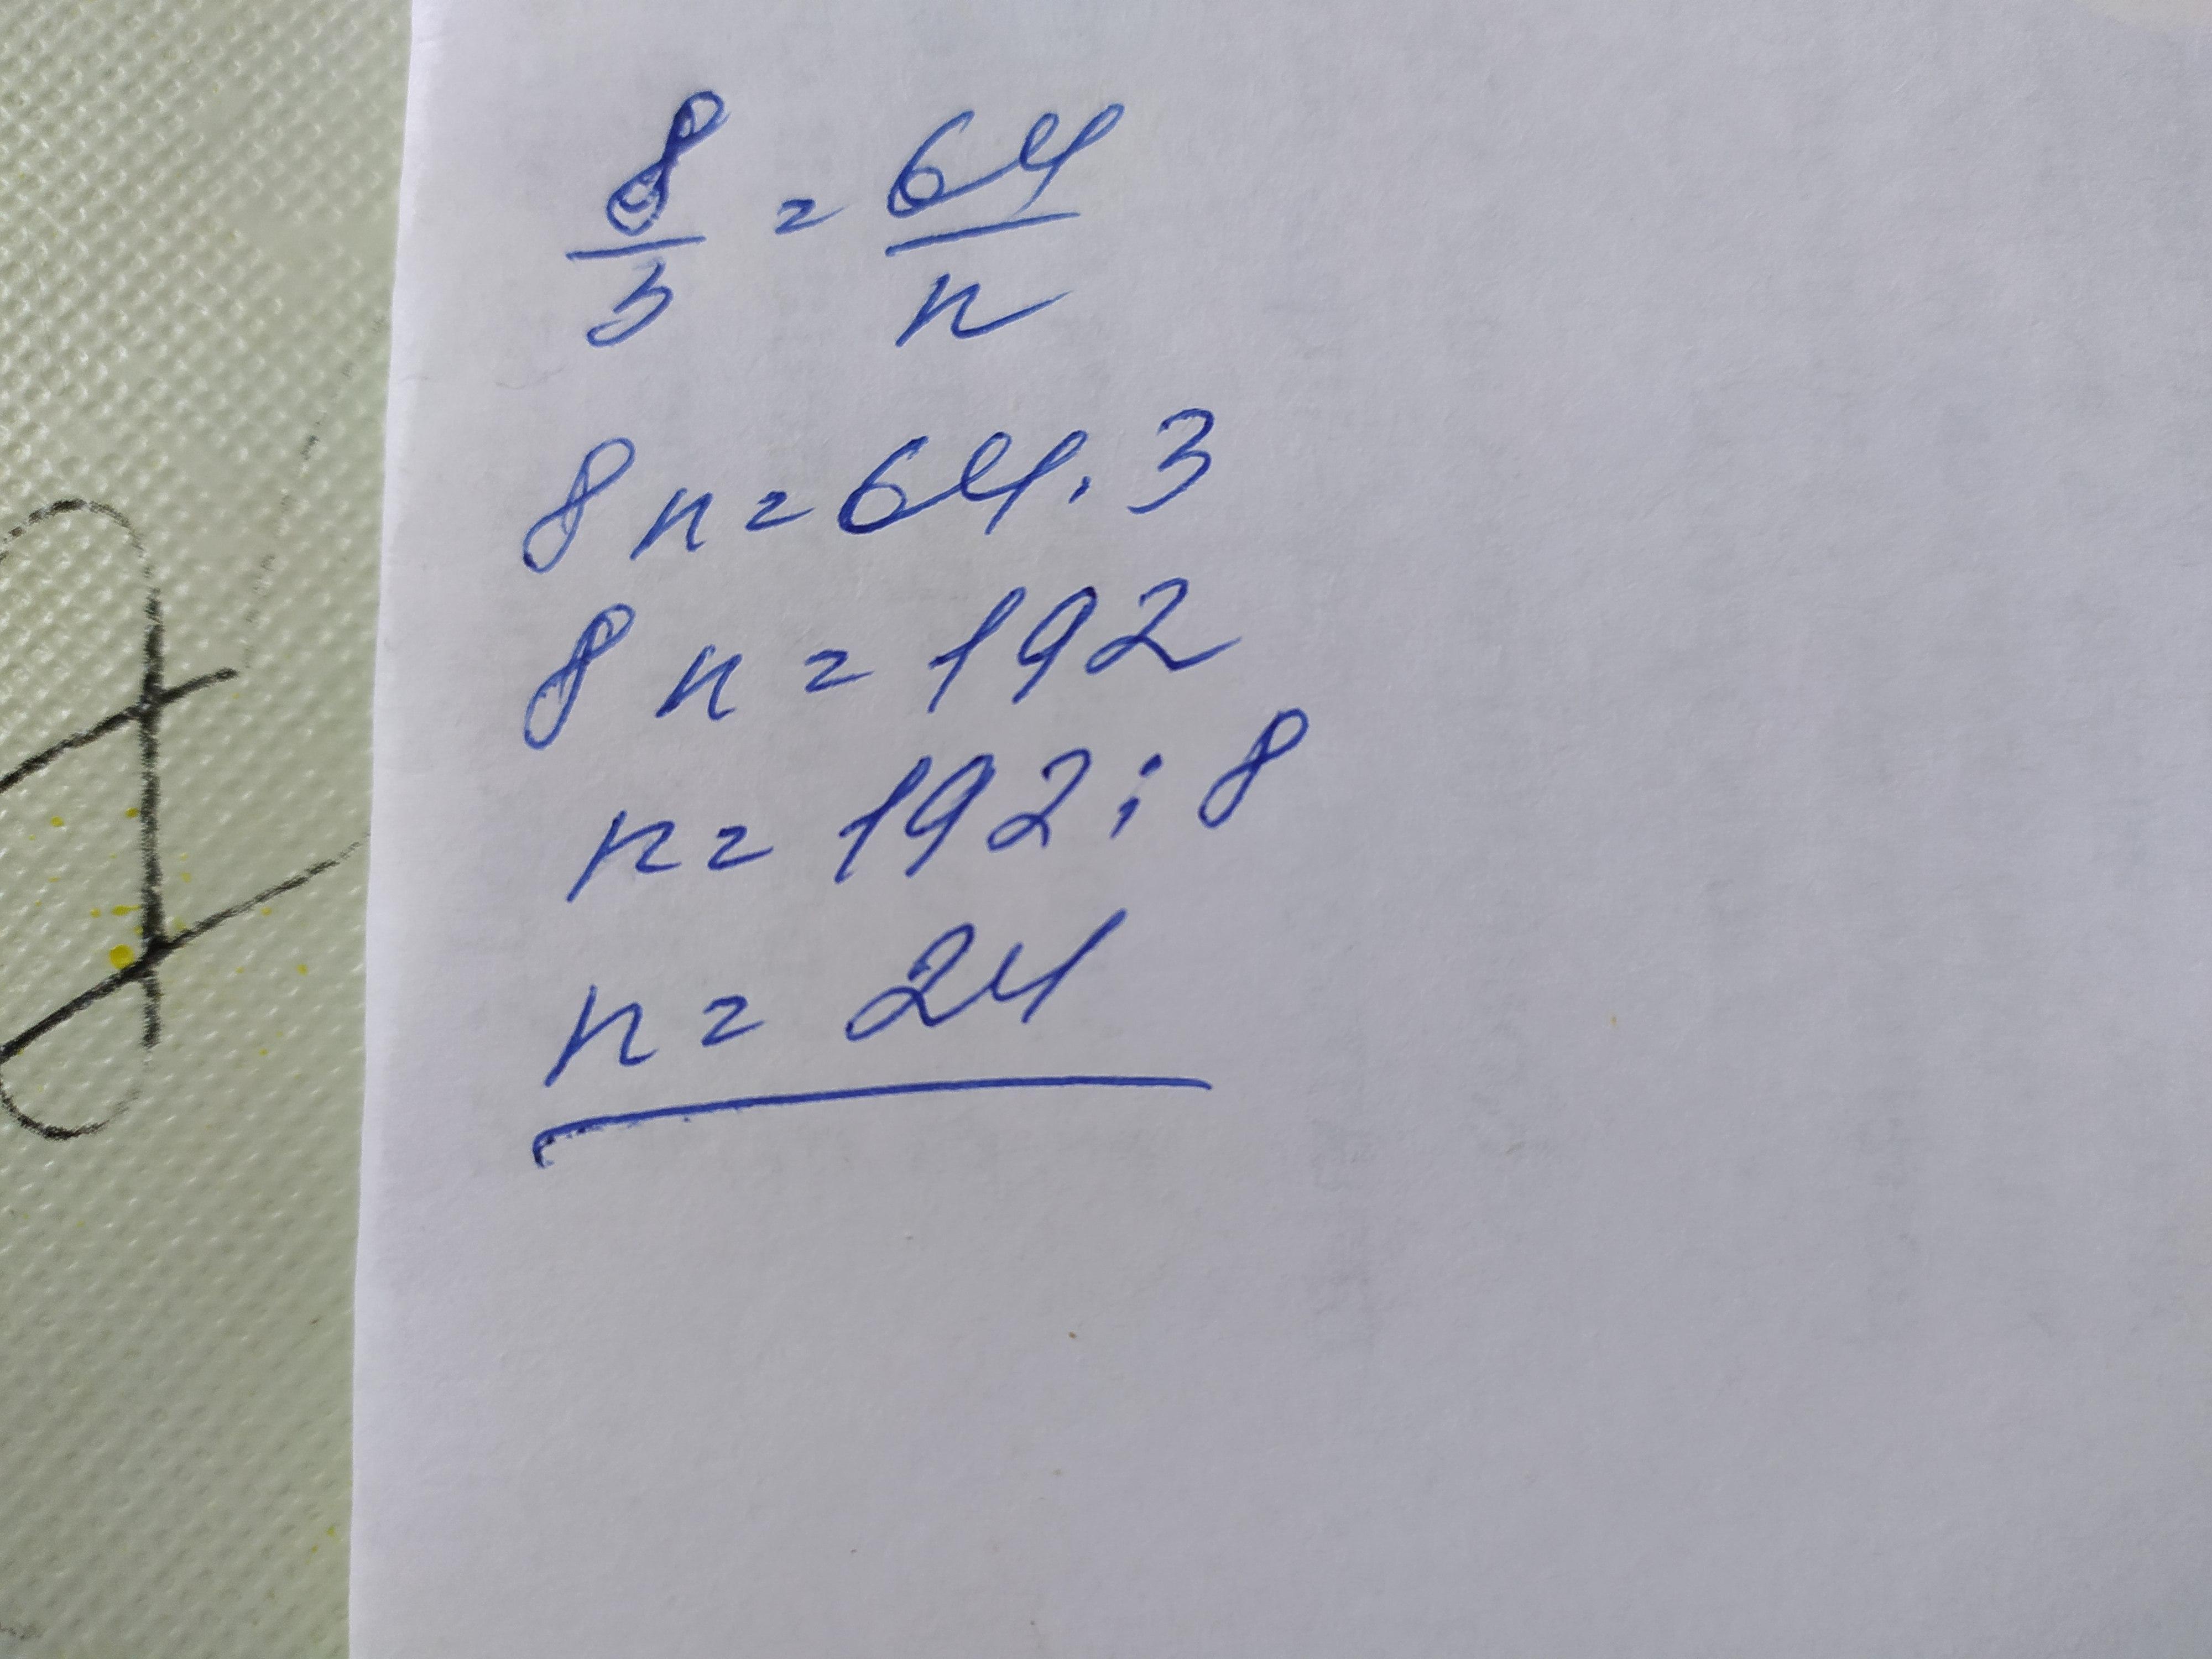 8/3 = 64/n
8n = 64 . 3
8n = 192
n = 192 : 8
n = 24